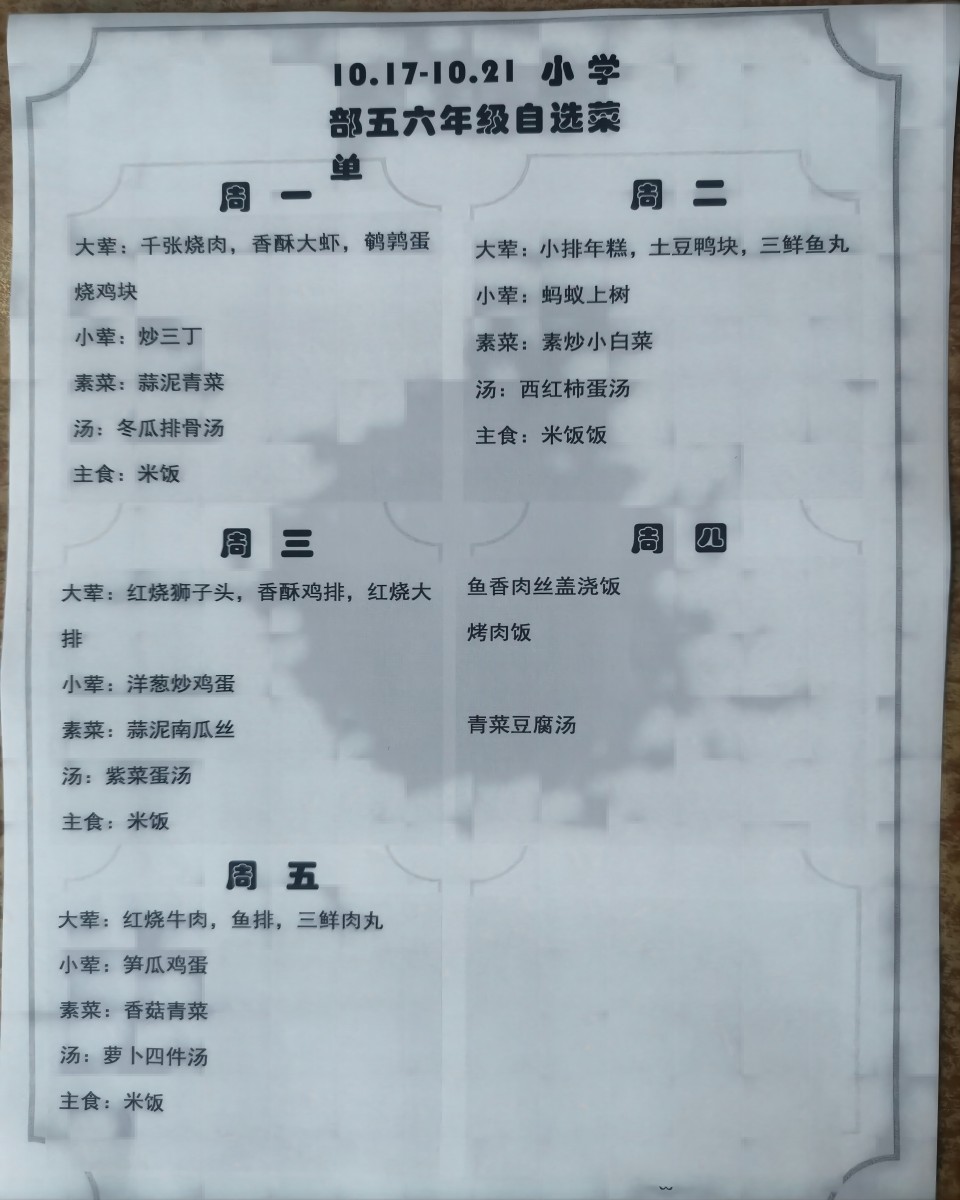 10.17-10.21 小学
部五六年级自选菜
单
周一
大荤：千张烧肉，香酥大虾，鹌鹑蛋
烧鸡块
小荤：炒三丁
素菜：蒜泥青菜
汤：冬瓜排骨汤
主食：米饭
周二
大荤：小排年糕，土豆鸭块，三鲜鱼丸
小荤：蚂蚁上树
素菜：素炒小白菜
汤：西红柿蛋汤
主食：米饭饭
周三
大荤：红烧狮子头，香酥鸡排，红烧大
排
小荤：洋葱炒鸡蛋
素菜：蒜泥南瓜丝
汤：紫菜蛋汤
主食：米饭
周四
鱼香肉丝盖浇饭
烤肉饭
青菜豆腐汤
周五
大荤：红烧牛肉，鱼排，三鲜肉丸
小荤：笋瓜鸡蛋
素菜：香菇青菜
汤：萝卜四件汤
主食：米饭